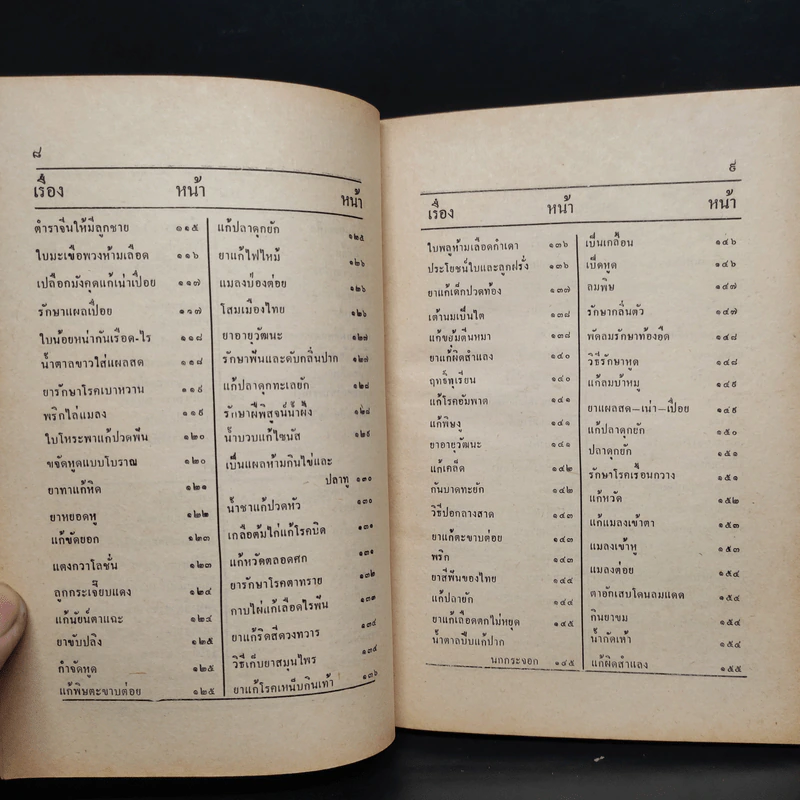 ๘
เรื่อง หน้า หน้า
ตำราจีนให้มีลูกชาย ๑๑๕
ใบมะเขือพวงห้ามเลือด ๑๑๖
เปลือกมังคุดแก้เน่าเปื่อย ๑๑๗
รักษาแผลเปื่อย ๑๑๗
ใบน้อยหน่ากันเรือด-ไร ๑๑๘
น้ำตาลขาวใส่แผลสด ๑๑๘
ยารักษาโรคเบาหวาน ๑๑๙
พริกไล่แมลง ๑๑๙
ใบโหระพาแก้ปวดฟัน ๑๒๐
ขจัดหูดแบบโบราณ ๑๒๐
ยาทาแก้หิด ๑๒๑
ยาหยอดหู ๑๒๒
แก้ขัดยอก ๑๒๓
แตงกวาโลชั่น ๑๒๓
ลูกกระเจี๊ยบแดง ๑๒๔
แก้นัยน์ตาแฉะ ๑๒๔
ยาขับปลิง ๑๒๕
กำจัดหูด ๑๒๕
แก้พิษตะขาบต่อย ๑๒๕
แก้ปลาดุกยัก ๑๒๕
ยาแก้ไฟไหม้ ๑๒๖
แมลงป่องต่อย ๑๒๖
โสมเมืองไทย ๑๒๖
ยาอายุวัฒนะ ๑๒๗
รักษาฟันและดับกลิ่นปาก ๑๒๗
แก้ปลาดุกทะเลยัก ๑๒๘
รักษาฝีพิสูจน์น้ำผึ้ง ๑๒๘
น้ำบวบแก้ไซนัส ๑๒๙
เป็นแผลห้ามกินไข่และ
ปลาทู ๑๓๐
น้ำชาแก้ปวดหัว ๑๓๐
เกลือต้มไก่แก้โรคบิด ๑๓๑
แก้หวัดตลอดศก ๑๓๑
ยารักษาโรคตาทราย ๑๓๒
กาบไผ่แก้เลือดไรฟัน ๑๓๓
ยาแก้ริดสีดวงทวาร ๑๓๔
วิธีเก็บยาสมุนไพร ๑๓๔
ยาแก้โรคเหน็บกินเท้า ๑๓๖
๙
เรื่อง หน้า หน้า
ใบพลูห้ามเลือดกำเดา ๑๓๖
ประโยชน์ใบและลูกฝรั่ง ๑๓๖
ยาแก้เด็กปวดท้อง ๑๓๗
เต้านมเป็นไต ๑๓๘
แก้ขย้มตีนหมา ๑๓๘
ยาแก้ผิดสำแลง ๑๔๐
ฤทธิ์ทุเรียน ๑๔๐
แก้โรคอัมพาต ๑๔๑
แก้พิษงู ๑๔๑
ยาอายุวัฒนะ ๑๔๑
แก้เคล็ด ๑๔๒
กันบาดทะยัก ๑๔๒
วิธีปอกลางสาด ๑๔๓
ยาแก้ตะขาบต่อย ๑๔๓
พริก ๑๔๓
ยาสีฟันของไทย ๑๔๔
แก้ปลายัก ๑๔๔
ยาแก้เลือดตกไม่หยุด ๑๔๕
น้ำตาลปีบแก้ปาก
นกกระจอก ๑๔๕
เป็นเกลื้อน ๑๔๖
เบ็ดหูด ๑๔๖
ลมพิษ ๑๔๗
รักษากลิ่นตัว ๑๔๗
พัดลมรักษาท้องอืด ๑๔๘
วิธีรักษาหูด ๑๔๘
แก้ลมบ้าหมู ๑๔๙
ยาแผลสด-เน่า-เปื่อย ๑๔๙
แก้ปลาดุกยัก ๑๕๐
ปลาดุกยัก ๑๕๑
รักษาโรคเรื้อนกวาง ๑๕๑
แก้หวัด ๑๕๒
แก้แมลงเข้าตา ๑๕๓
แมลงเข้าหู ๑๕๓
แมลงต่อย ๑๕๔
ตาอักเสบโดนลมแดด ๑๕๔
กินยาขม ๑๕๔
น้ำกัดเท้า ๑๕๔
แก้ผิดสำแลง ๑๕๕